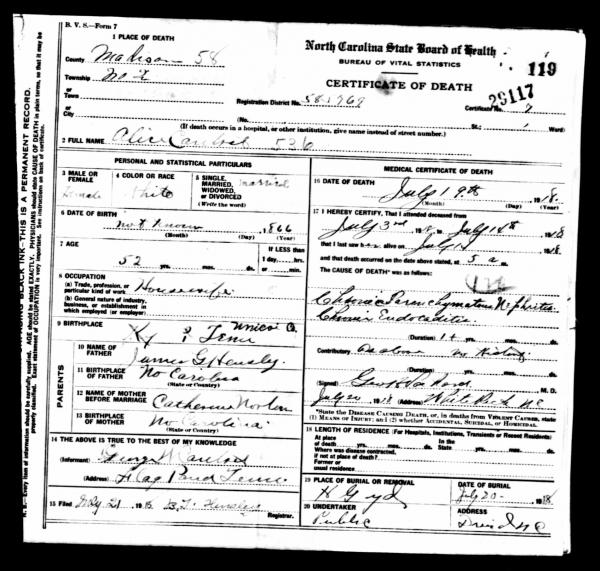 B. V. S.—Form 7
North Carolina State Board of Health
BUREAU OF VITAL STATISTICS
CERTIFICATE OF DEATH
119
29117
1 PLACE OF DEATH
County Madison 58
Township No 7
or
Town
or
City
Registration District No. 58-1969
Certificate No. 7
(No. St.; Ward)
(If death occurs in a hospital, or other institution, give name instead of street number.)
2 FULL NAME Alice 526
PERSONAL AND STATISTICAL PARTICULARS
3 MALE OR FEMALE
Female
4 COLOR OR RACE
White
5 SINGLE, MARRIED, WIDOWED, OR DIVORCED
(Write the word)
married
6 DATE OF BIRTH
not known 1866
(Month) (Day) (Year)
7 AGE
52 yrs. mos. ds.
IF LESS than
1 day, hrs.
or min.
8 OCCUPATION
(a) Trade, profession, or particular kind of work
Housewife
(b) General nature of industry, business, or establishment in which employed (or employer)
9 BIRTHPLACE
Tenn
PARENTS
10 NAME OF FATHER
James G Hensley
11 BIRTHPLACE OF FATHER
No Carolina
(State or Country)
12 NAME OF MOTHER BEFORE MARRIAGE
Catherine Norton
13 BIRTHPLACE OF MOTHER
No Carolina
(State or Country)
14 THE ABOVE IS TRUE TO THE BEST OF MY KNOWLEDGE
(Informant) George
(Address) Flag Pond Tenn
15 Filed July 21 1918 Hensley
Registrar.
MEDICAL CERTIFICATE OF DEATH
16 DATE OF DEATH
July 19th 1918.
(Month) (Day) (Year)
17 I HEREBY CERTIFY, That I attended deceased from
July 3rd 1918, to July 18th 1918
that I last saw her alive on July 1918
and that death occurred on the date above stated, at 5 a m.
The CAUSE OF DEATH* was as follows:
Chronic Parenchymatous Nephritis
Chronic Endocarditis
(Duration) 1+ yrs. mos. ds.
Contributory As above
(Duration) yrs. mos. ds.
(Signed) M. D.
July 20 1918 (Address) White Rock N C
*State the DISEASE CAUSING DEATH, or, in deaths from VIOLENT CAUSES, state (1) MEANS OF INJURY; and (2) whether ACCIDENTAL, SUICIDAL, or HOMICIDAL.
18 LENGTH OF RESIDENCE (For Hospitals, Institutions, Transients or Recent Residents)
At place of death yrs. mos. ds. In the State yrs. mos. ds.
Where was disease contracted, if not at place of death?
Former or usual residence
19 PLACE OF BURIAL OR REMOVAL
H G yd
DATE OF BURIAL
July 20 1918
20 UNDERTAKER
Public
ADDRESS
N C